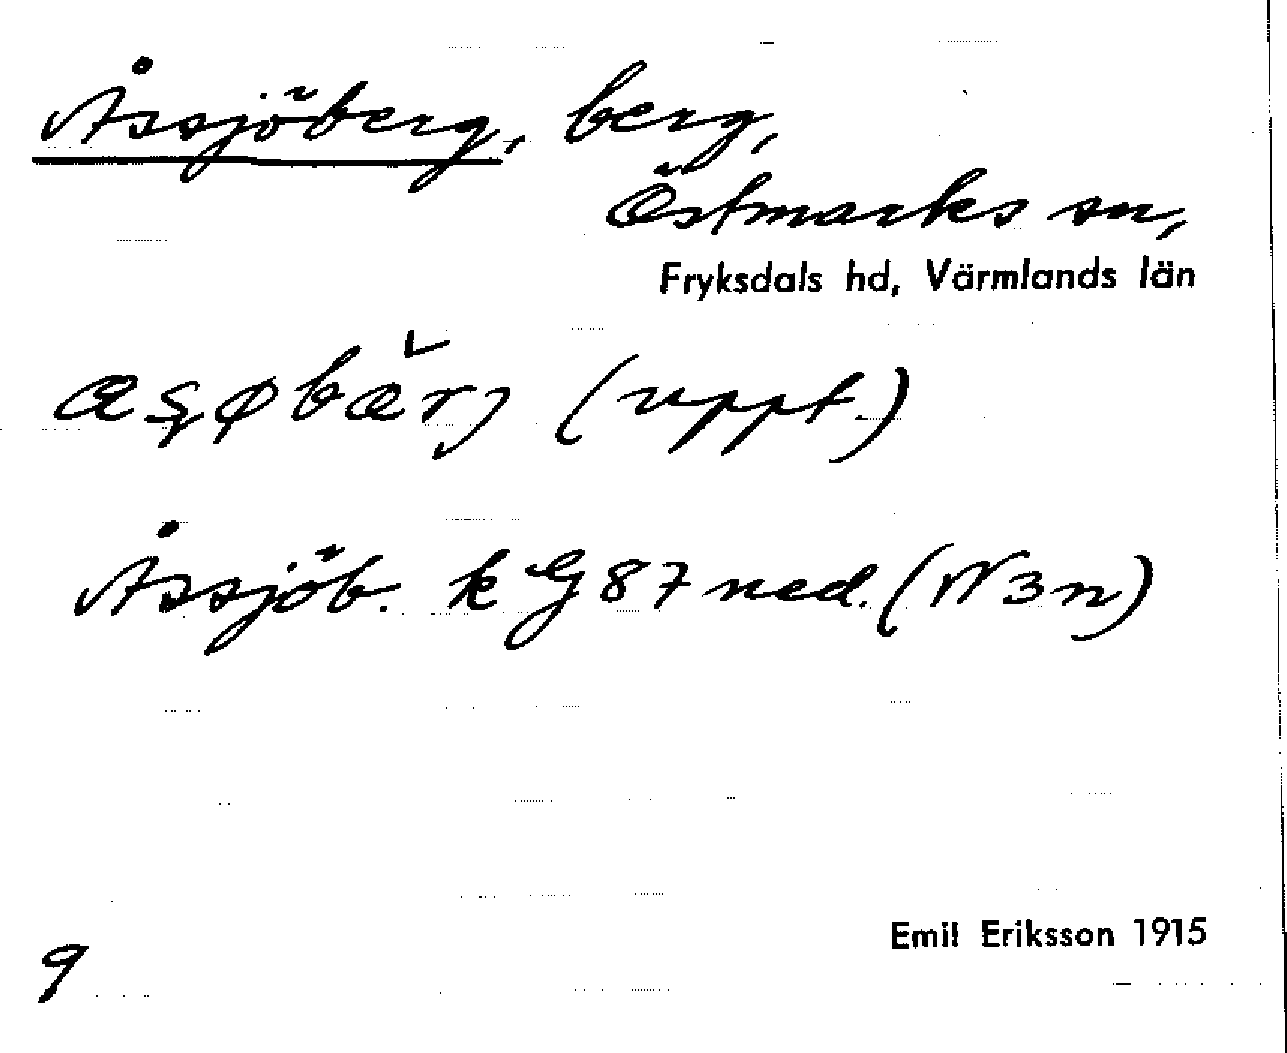 Åssjöberg, berg,
Östmarks sn,
Fryksdals hd, Värmlands län
(uppt.)
Åssjöb. k G 87 ned. (N3n)
Emil Eriksson 1915
9